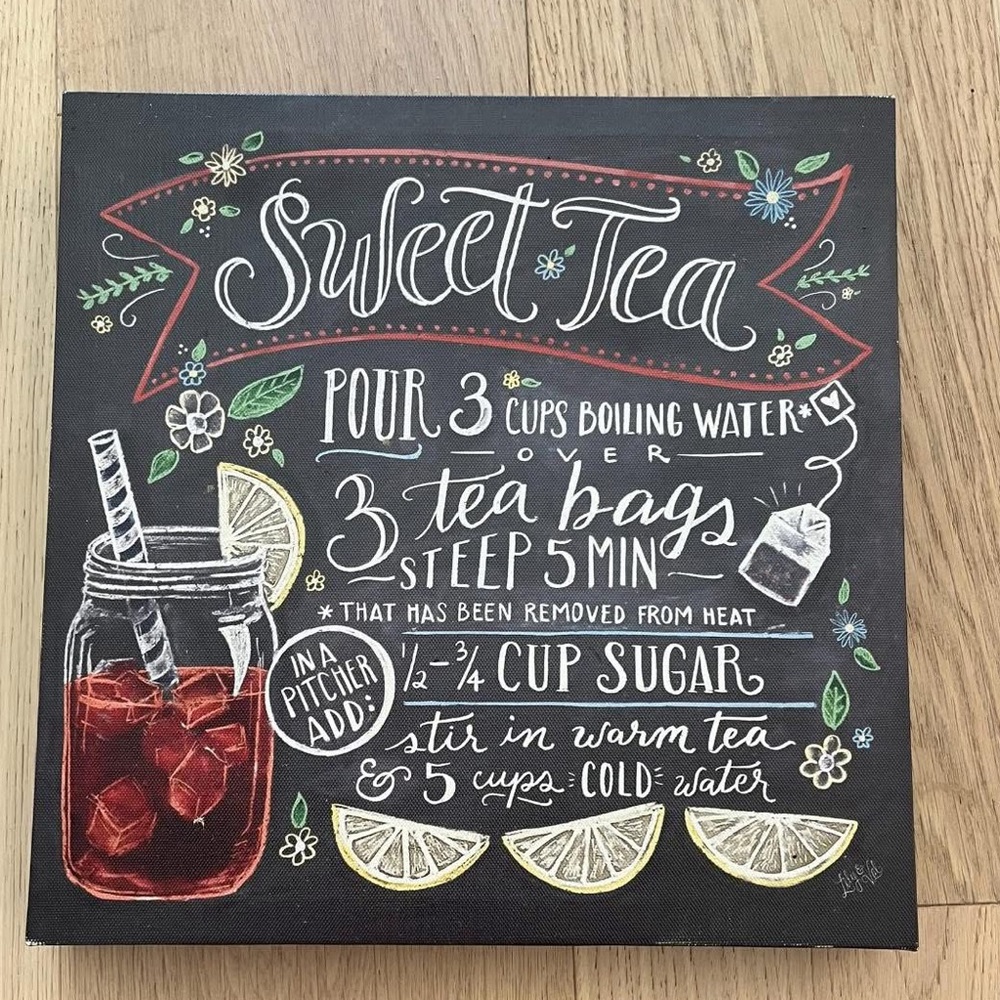 Sweet Tea
POUR 3 CUPS BOILING WATER*
OVER
3 tea bags
STEEP 5 MIN
*THAT HAS BEEN REMOVED FROM HEAT
IN A
PITCHER
ADD:
1/2-3/4 CUP SUGAR
stir in warm tea
& 5 cups COLD water
Lily & Val